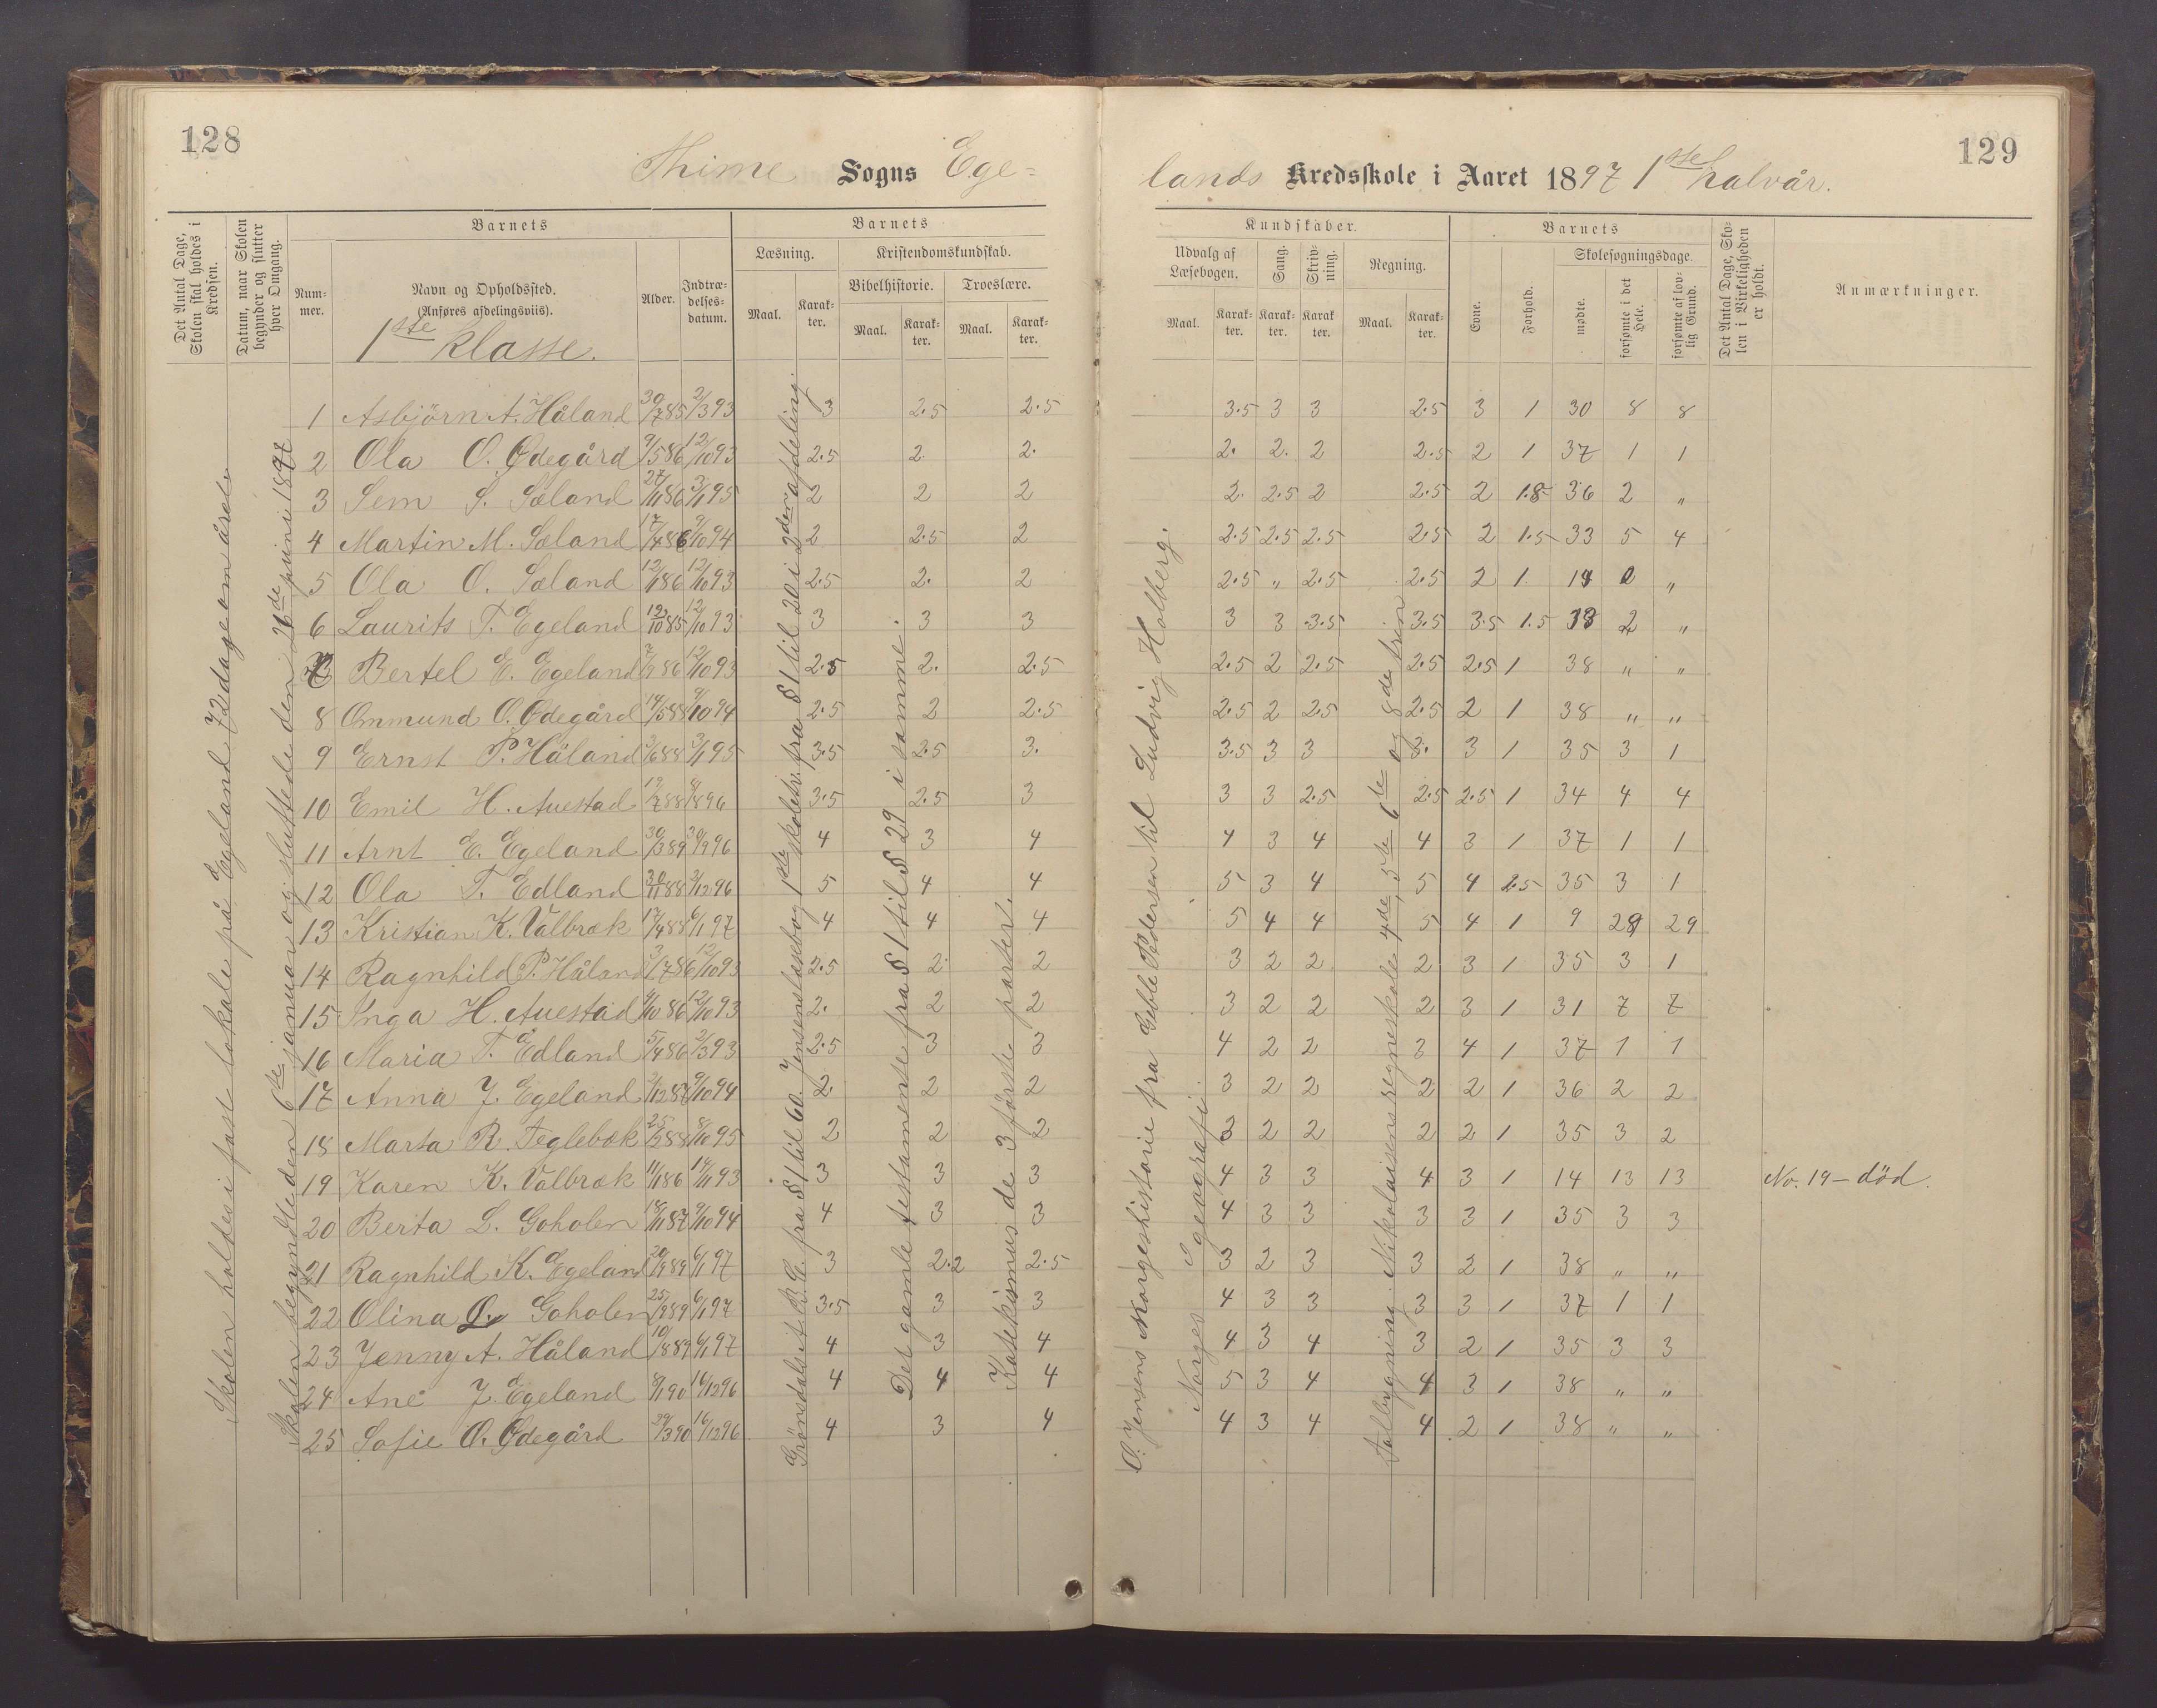 128
129
Thime Sogns Ege=
lands Kredsskole i Aaret 1897 1ste halvår.
Det Antal Dage, Skolen skal holdes i Kredsen.
Datum, naar Skolen begynder og slutter hver Omgang.
Num-mer.
Barnets
Navn og Opholdssted.
(Anføres afdelingsviis).
1ste klasse.
Alder.
Indtræ-delses-datum.
Barnets
Læsning.
Maal. Karak-ter.
Kristendomskundskab.
Bibelhistorie. Troeslære.
Maal. Karak-ter. Maal. Karak-ter.
Kundskaber.
Udvalg af Læsebogen. Sang. Skriv-ning. Regning.
Maal. Karak-ter. Karak-ter. Karak-ter. Maal. Karak-ter.
Barnets
Evne. Forhold. Skolesøgningsdage.
mødte. forsømte i det Hele. forsømte af lov-lig Grund.
Det Antal Dage, Sko-len i Virkeligheden er holdt.
Anmærkninger.
Skolen holdes i fast lokale på Egeland 72 dage om året
Skolen begyndte den 6te januar og sluttede den 26de juni 1897
Grönsdals A.B.C. fra § 1 til 60. Jensens læsebog 1ste skoletr. fra § 1 til 20 i 2den afdeling.
Det gamle testamente fra § 1 til § 29 i samme.
Katekismus de 3 förste parter.
O. Jensens Norgeshistorie fra Geble Pedersen til Ludvig Holberg.
Norges geografi.
Tallbygning. Nikolaisens regneskole 4de, 5te 6te og 8de trin
1 Asbjörn A. Håland 30/7 85 2/3 93 3 2.5 2.5 3.5 3 3 2.5 3 1 30 8 8
2 Ola O. Ødegård 9/5 86 12/10 93 2.5 2 2. 2. 2. 2 2.5 2 1 37 1 1
3 Sem S. Sæland 27/11 86 3/1 95 2 2 2 2. 2.5 2 2.5 2 1.8 36 2 "
4 Martin M. Sæland 17/4 86 9/10 94 2 2.5 2 2.5 2.5 2.5 2.5 2 1.5 33 5 4
5 Ola O. Sæland 12/1 86 12/10 93 2.5 2. 2 2.5 " 2.5 2.5 2 1 19 0 "
6 Laurits T. Egeland 12/10 85 12/10 93 3 3 3 3 3 3.5 3.5 3.5 1.5 38 2 "
7 Bertel E. Egeland 7/9 86 12/10 93 2.5 2. 2.5 2.5 2 2.5 2.5 2.5 1 38 " "
8 Ommund O. Ødegård 14/5 88 9/10 94 2.5 2 2.5 2.5 2 2.5 2.5 2 1 38 " "
9 Ernst P. Håland 3/6 88 3/1 95 3.5 2.5 3. 3.5 3 3 3. 3 1 35 3 1
10 Emil H. Auestad 12/7 88 8/8 96 3.5 2.5 3 3 3 2.5 2.5 2.5 1 34 4 4
11 Arnt E. Egeland 30/3 89 30/9 96 4 3 4 4 3 4 4 3 1 37 1 1
12 Ola T. Edland 30/11 88 2/12 96 5 4 4 5 3 4 5 4 2.5 35 3 1
13 Kristian K. Valbræk 17/4 88 6/1 97 4 4 4 5 4 4 5 4 1 9 29 29
14 Ragnhild P. Håland 3/7 86 12/10 93 2.5 2 2 3 2 2 2 3 1 35 3 1
15 Inga H. Auestad 4/10 86 12/10 93 2. 2 2 3 2 2 2 3 1 31 7 7
16 Maria T. Edland 5/4 86 2/3 93 2.5 3 3 4 2 2 3 4 1 37 1 1
17 Anna J. Egeland 2/12 87 9/10 94 2. 2 2 3 2 2 2 2 1 36 2 2
18 Marta R. Teglebæk 25/2 88 8/10 95 2 2 2 3 2 2 2 2 1 35 3 2
19 Karen K. Valbræk 11/1 86 14/11 93 3 3 3 4 3 3 4 3 1 14 13 13 No. 19 – död.
20 Berta L. Goholen 18/11 87 9/10 94 4 3 3 4 3 3 3 3 1 35 3 3
21 Ragnhild K. Egeland 20/9 89 6/1 97 3 2.2 2.5 3 2 3 3 2 1 38 " "
22 Olina L. Goholen 25/9 89 6/1 97 3.5 3 3 4 3 3 3 3 1 37 1 1
23 Jenny A. Håland 10/8 89 6/1 97 4 3 4 4 3 4 3 2 1 35 3 3
24 Ane J. Egeland 8/1 90 16/12 96 4 4 4 5 3 4 4 3 1 38 " "
25 Sofie O. Ødegård 30/3 90 16/12 96 4 3 4 4 3 4 4 2 1 38 " "